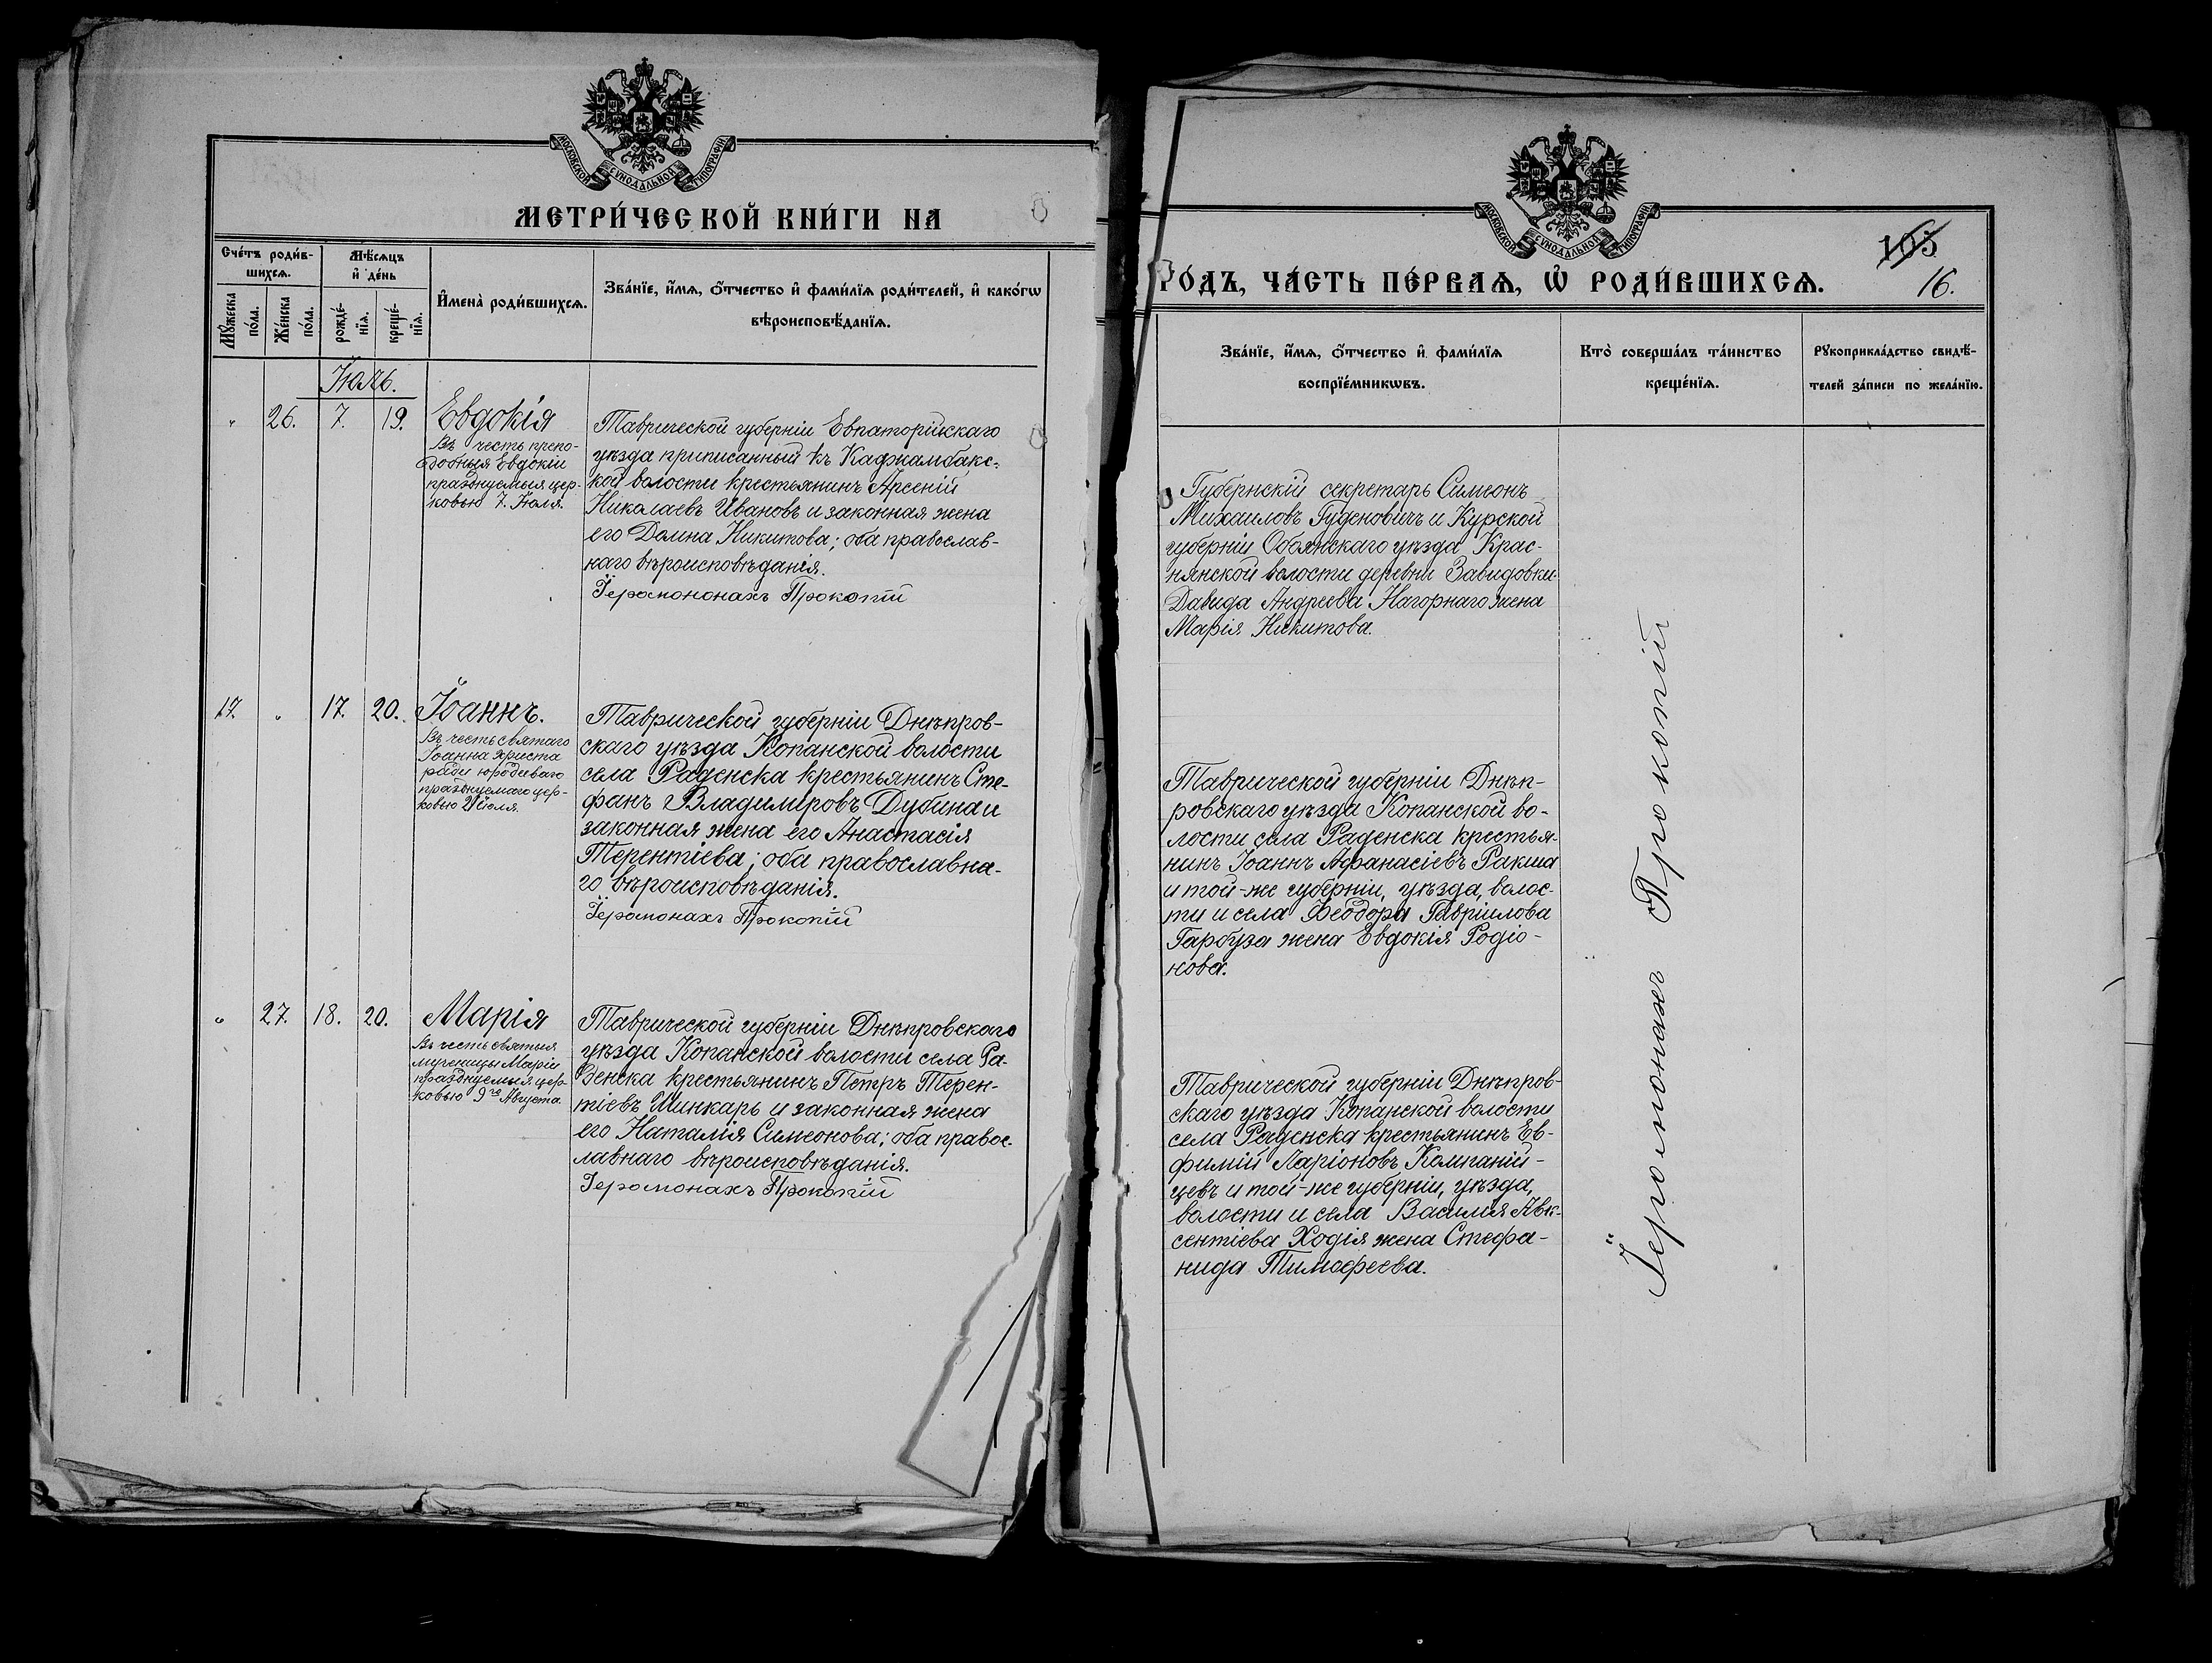 МОСКОВСКОЙ СѴНОДАЛЬНОЙ ТИПОГРАФІИ
МЕТРИ́ЧЕСКОЙ КНИ́ГИ НА
Сче́тъ роди́в-
шихсѧ.
Мѣ́сѧцъ
и҆ де́нь
Мꙋ́жеска
по́ла.
Же́нска
по́ла.
рожде́-
нїѧ.
креще́-
нїѧ.
И҆мена̀ роди́вшихсѧ.
Зва́нїе, и҆́мѧ, ѻ҆́тчество и҆ фами́лїѧ роди́телей, и҆ како́гѡ
вѣроисповѣ́данїѧ.
Іюль.
" 26. 7. 19. Евдокія
Въ честь препо-
добныя Евдокіи
празднуемыя цер-
ковью 7. Іюля.
Таврической губерніи Евпаторійскаго
уѣзда приписанный къ Каджамбакс-
кой волости крестьянинъ Арсеній
Николаевъ Ивановъ и законная жена
его Домна Никитова; оба православ-
наго вѣроисповѣданія.
Іеромононахъ Прокопій
17. " 17. 20. Іоаннъ.
Въ честь святаго
Іоанна Христа
ради юродиваго
празднуемаго цер-
ковью 21 іюля.
Таврической губерніи Днѣпров-
скаго уѣзда Копанской волости
села Раденска крестьянинъ Сте-
фанъ Владиміровъ Дубина и
законная жена его Анастасія
Терентіева; оба православна-
го вѣроисповѣданія.
Іеромонахъ Прокопій
" 27. 18. 20. Марія
Въ честь святыя
мученицы Маріи
празднуемыя цер-
ковью 9го Августа
Таврической губерніи Днѣпровскаго
уѣзда Копанской волости села Ра-
денска крестьянинъ Петръ Терен-
тіевъ Шинкарь и законная жена
его Наталія Симеонова; оба правос-
лавнаго вѣроисповѣданія.
Іеромонахъ Прокопій
МОСКОВСКОЙ СѴНОДАЛЬНОЙ ТИПОГРАФІИ
105
16.
ГО́ДЪ, ЧА́СТЬ ПЕ́РВАѦ, Ѡ҆ РОДИ́ВШИХСѦ.
Зва́нїе, и҆́мѧ, ѻ҆́тчество и҆ фами́лїѧ
воспрїе́мникѡвъ.
Кто̀ соверша́лъ та́инство
креще́нїѧ.
Рꙋкоприкла́дство свидѣ́-
телей за́писи по жела́нїю.
Губернскій секретарь Симеонъ
Михаиловъ Гуденовичъ и Курской
губерніи Обоянскаго уѣзда Крас-
нянской волости деревни Завидовки
Давида Андреева Нагорнаго жена
Марія Никитова.
Таврической губерніи Днѣп-
ровскаго уѣзда Копанской во-
лости села Раденска крестья-
нинъ Іоаннъ Афанасіевъ Ракша
и той-же губерніи, уѣзда, волос-
ти и села Ѳеодора Гавріилова
Гарбуза жена Евдокія Родіо-
нова.
Таврической губерніи Днѣпров-
скаго уѣзда Копанской волости
села Раденска крестьянинъ Ев-
фимій Ларіоновъ Компаній-
цевъ и той-же губерніи, уѣзда,
волости и села Василія Авк-
сентіева Ходія жена Стефа-
нида Тимоѳеева.
Іеромонахъ Прокопій